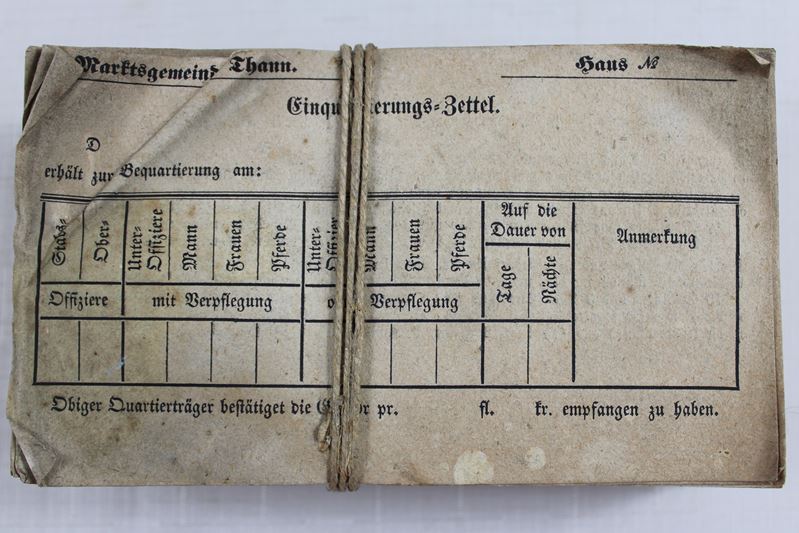 Marktsgemeind Thann. Haus №
Einqu erungs-Zettel.
D
erhält zur Bequartierung am:
Stabs- Ober- Unter-Offiziere Mann Frauen Pferde Unter- Mann Frauen Pferde Auf die Dauer von Anmerkung
Tage Nächte
Offiziere mit Verpflegung o Verpflegung
Obiger Quartierträger bestätiget die G r pr. fl. kr. empfangen zu haben.